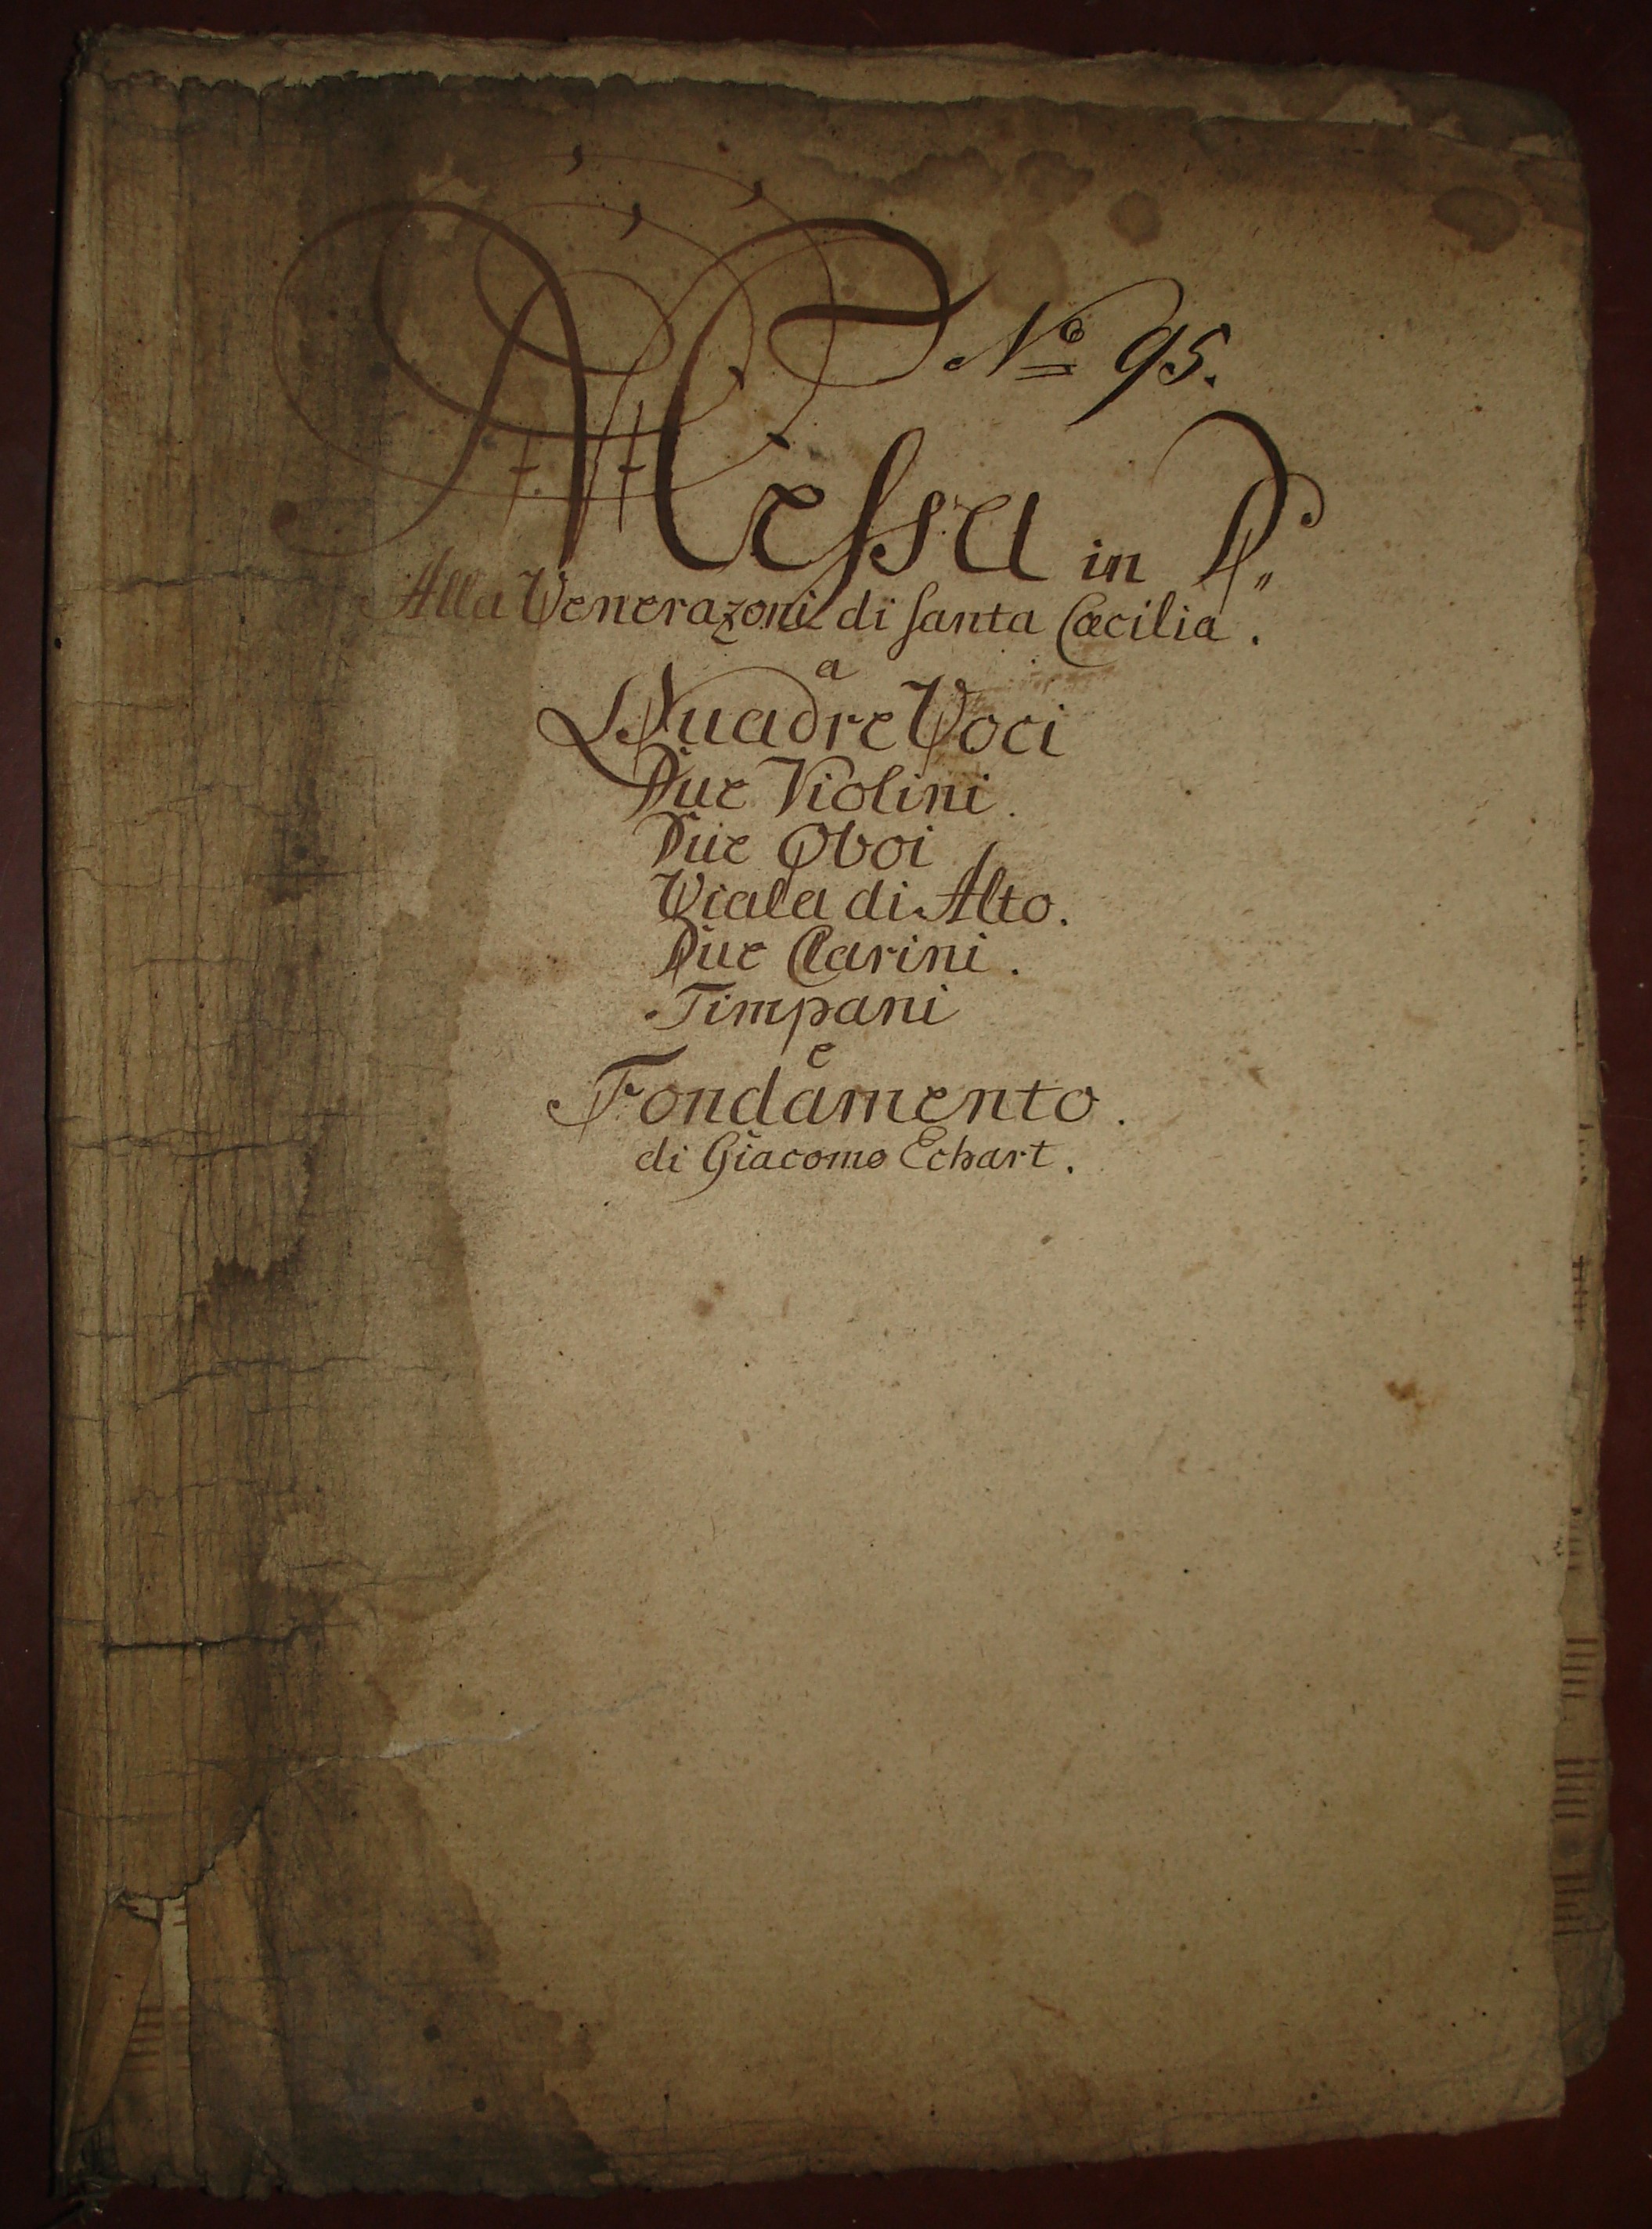 No 95.
Messa in D.
Alla Venerazoni di Santa Cæcilia.
a
Quadre Voci
Due Violini.
Due Oboi
Viala di Alto.
Due Clarini.
Timpani
e
Fondamento.
di Giacomo Echart.